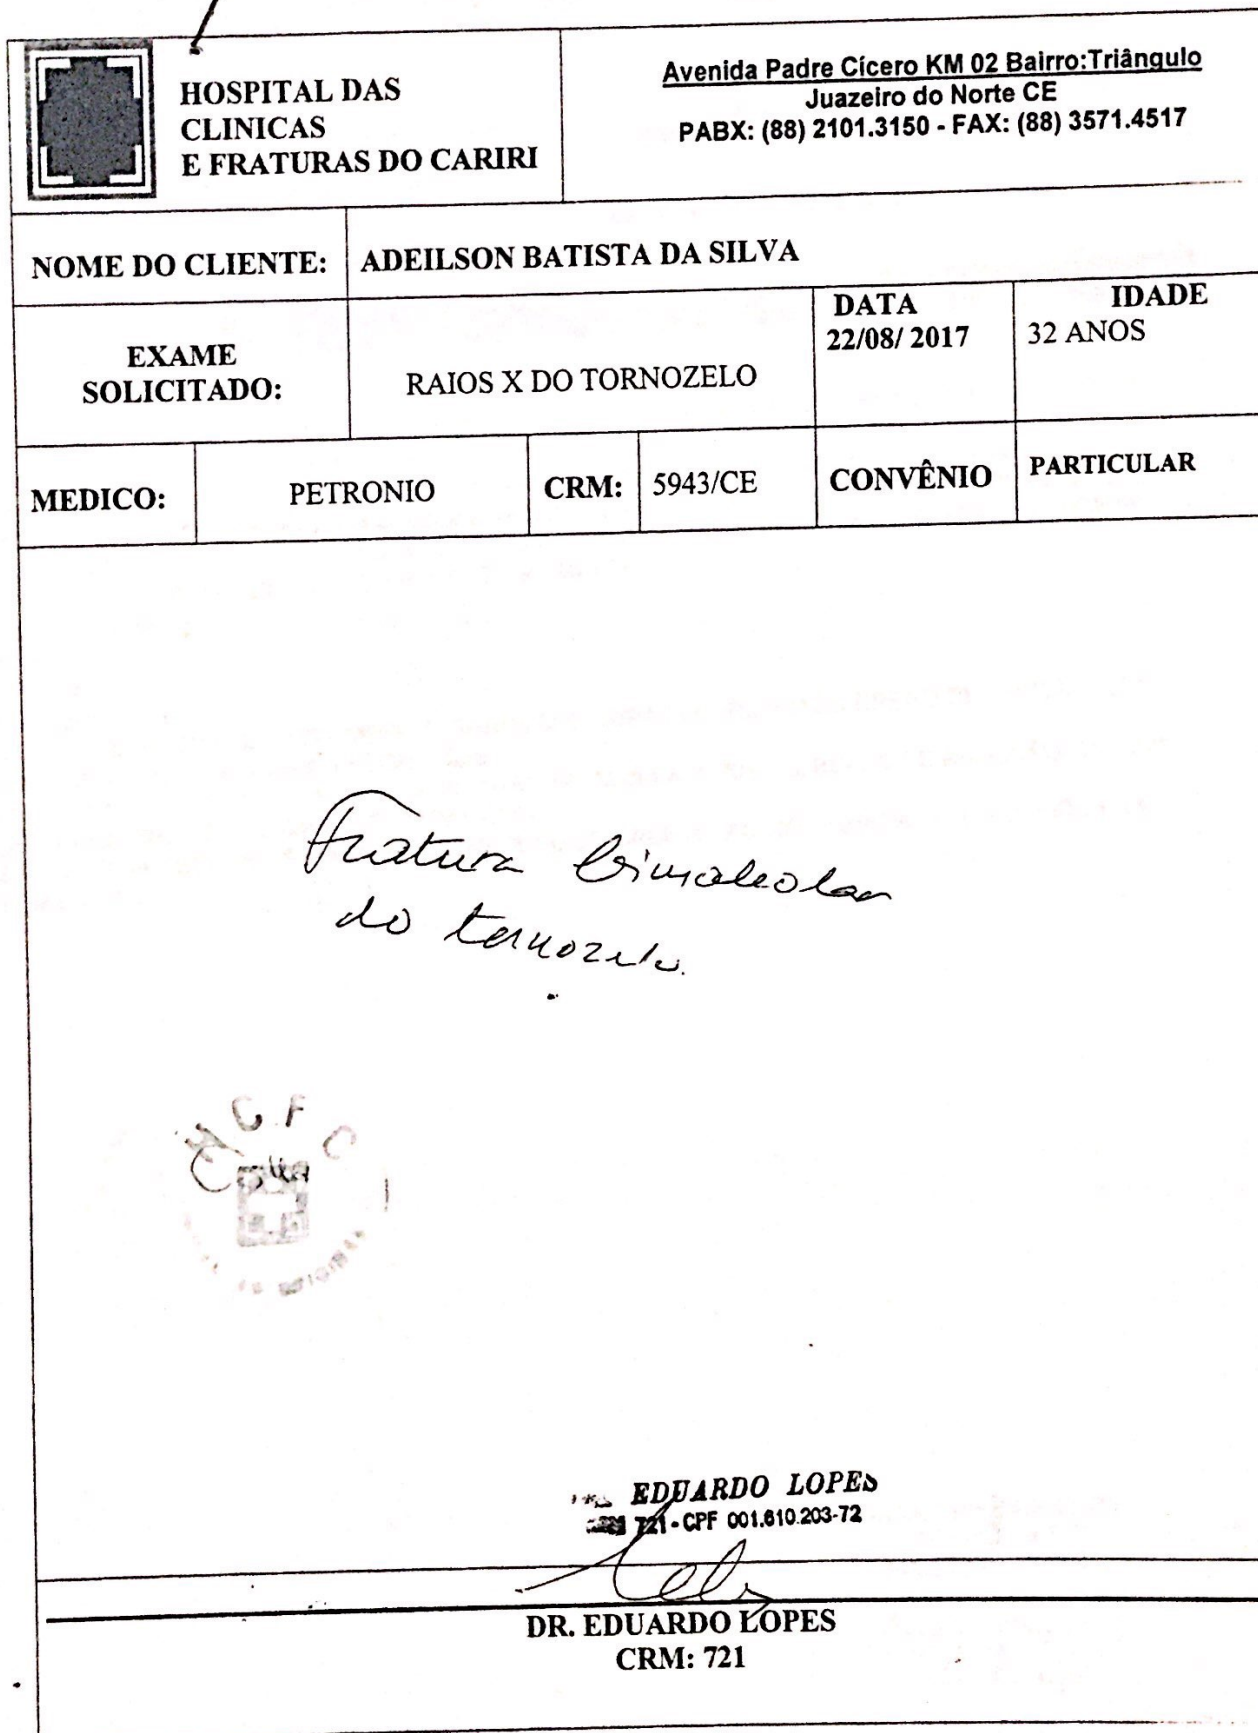 HOSPITAL DAS
CLINICAS
E FRATURAS DO CARIRI
Avenida Padre Cícero KM 02 Bairro:Triângulo
Juazeiro do Norte CE
PABX: (88) 2101.3150 - FAX: (88) 3571.4517
NOME DO CLIENTE: ADEILSON BATISTA DA SILVA
EXAME
SOLICITADO:
RAIOS X DO TORNOZELO
DATA
22/08/ 2017
IDADE
32 ANOS
MEDICO: PETRONIO CRM: 5943/CE CONVÊNIO PARTICULAR
Fratura bimaleolar
do tornozelo.
H C F C
EDUARDO LOPES
721 - CPF 001.610.203-72
DR. EDUARDO LOPES
CRM: 721